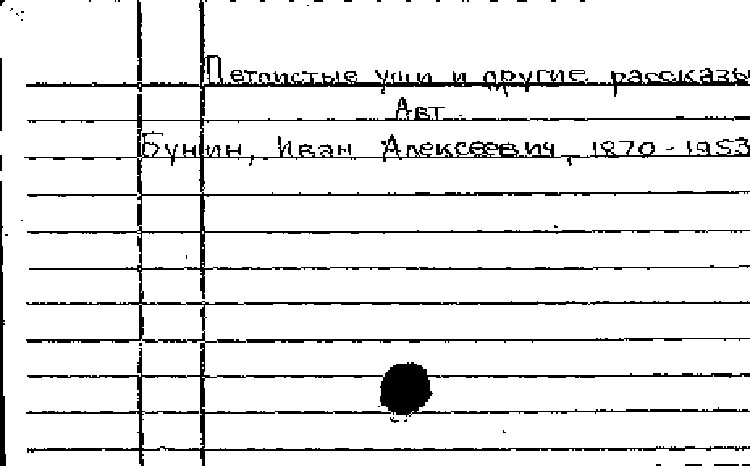 Петлистые уши и другие рассказы
Авт
Бунин, Иван Алексеевич, 1870-1953